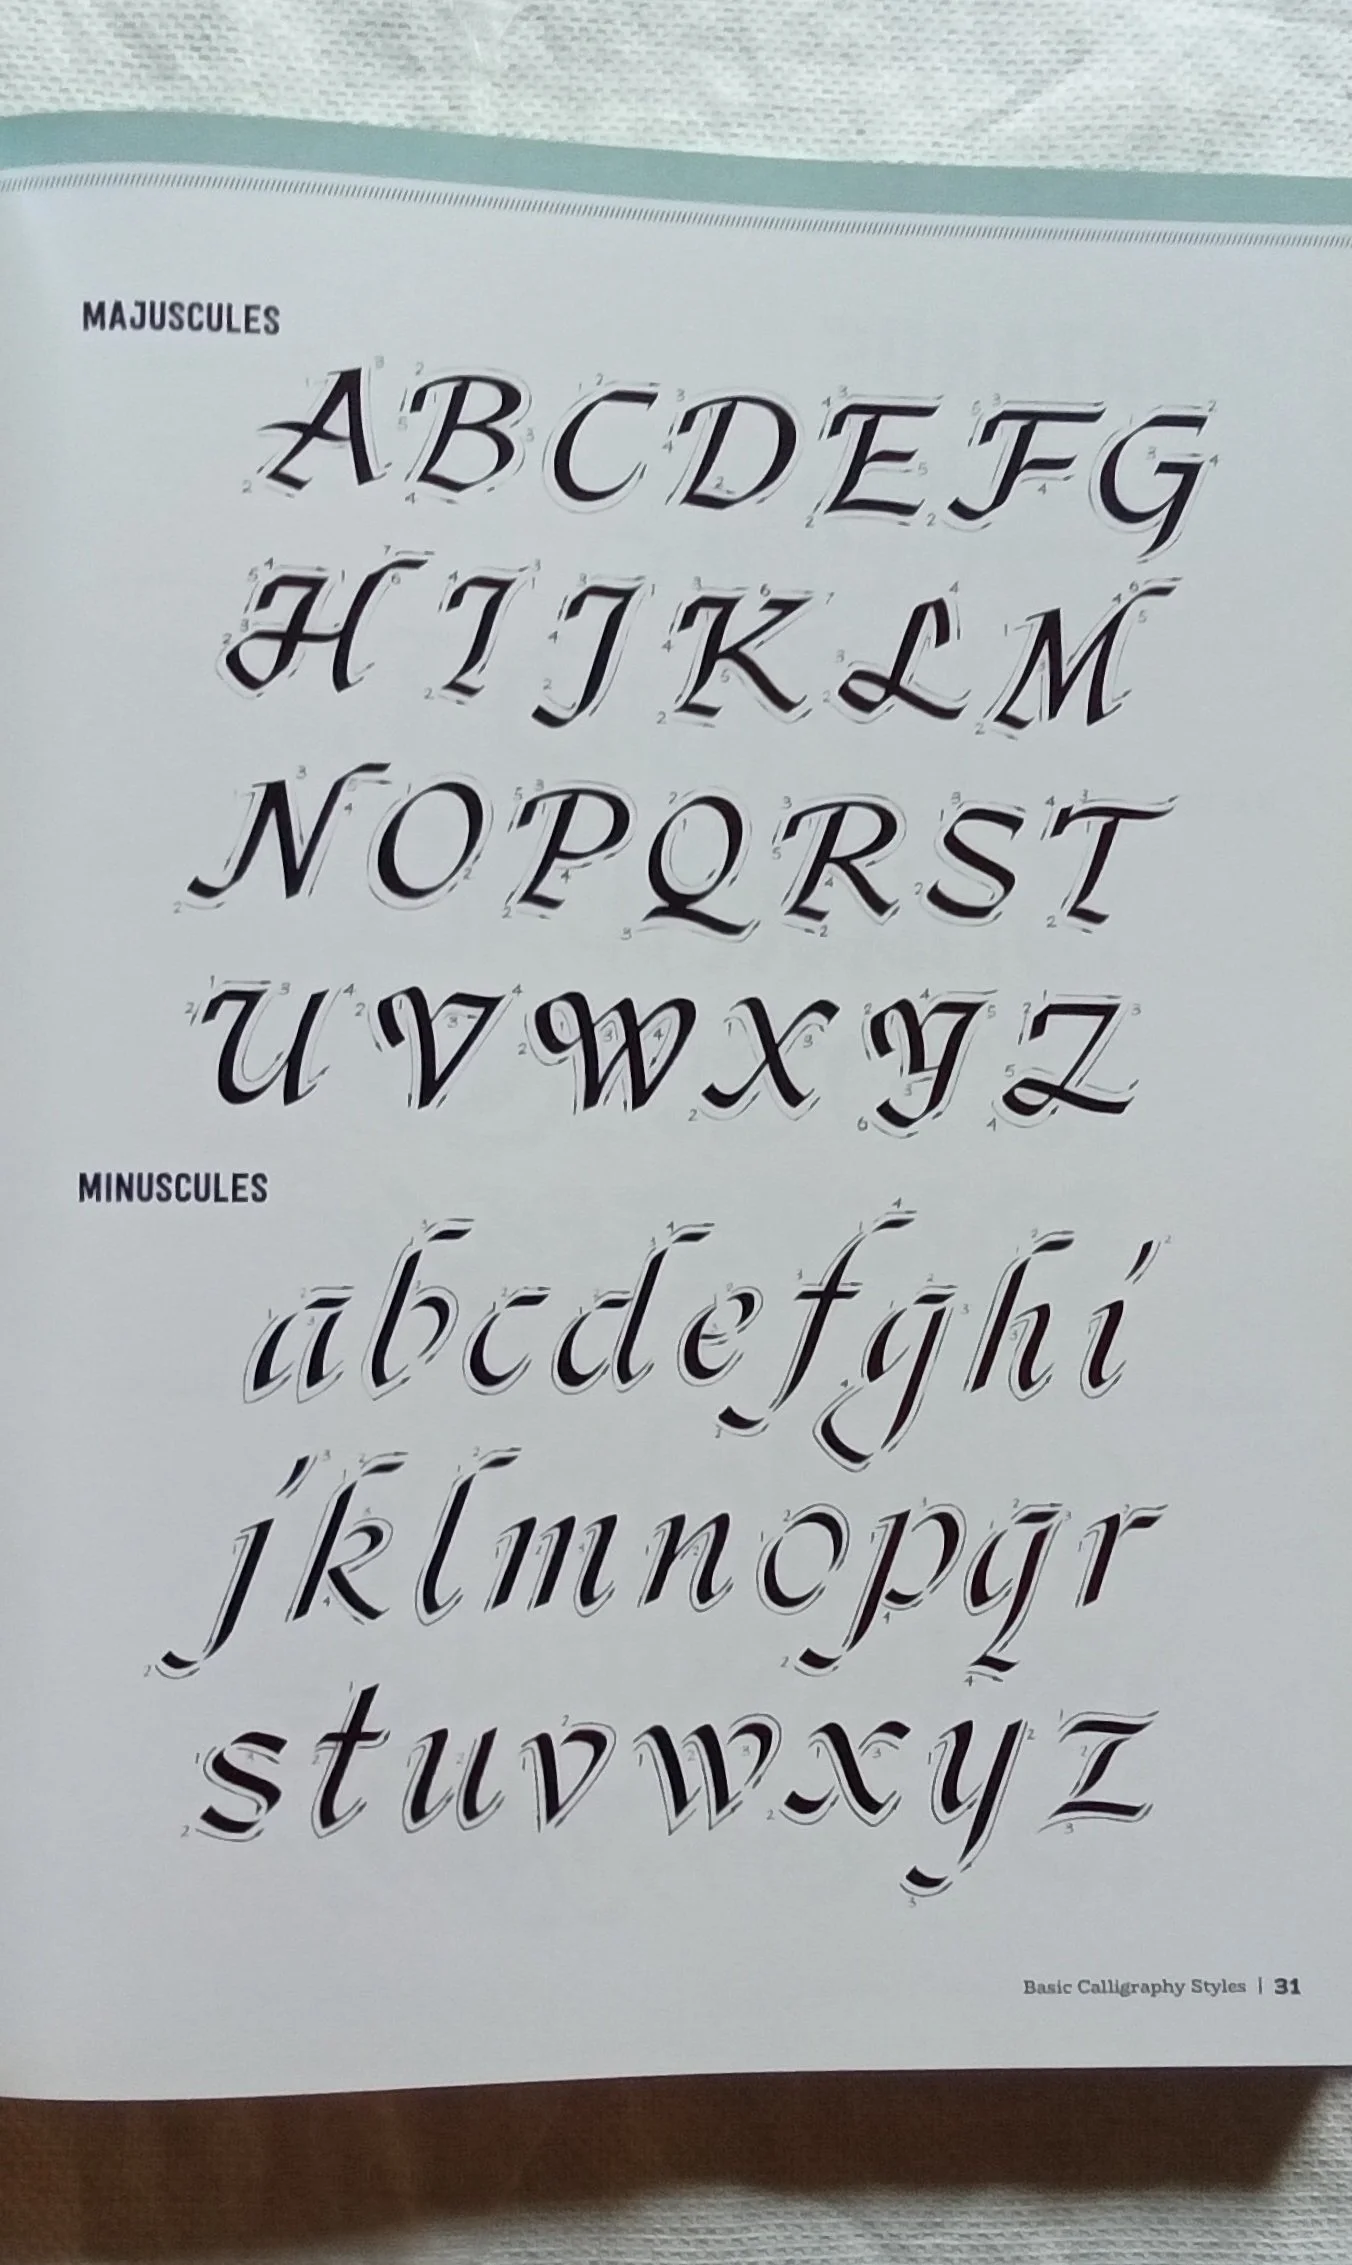 MAJUSCULES
A B C D E F G
H I J K L M
N O P Q R S T
U V W X Y Z
MINUSCULES
a b c d e f g h i
j k l m n o p q r
s t u v w x y z
Basic Calligraphy Styles | 31